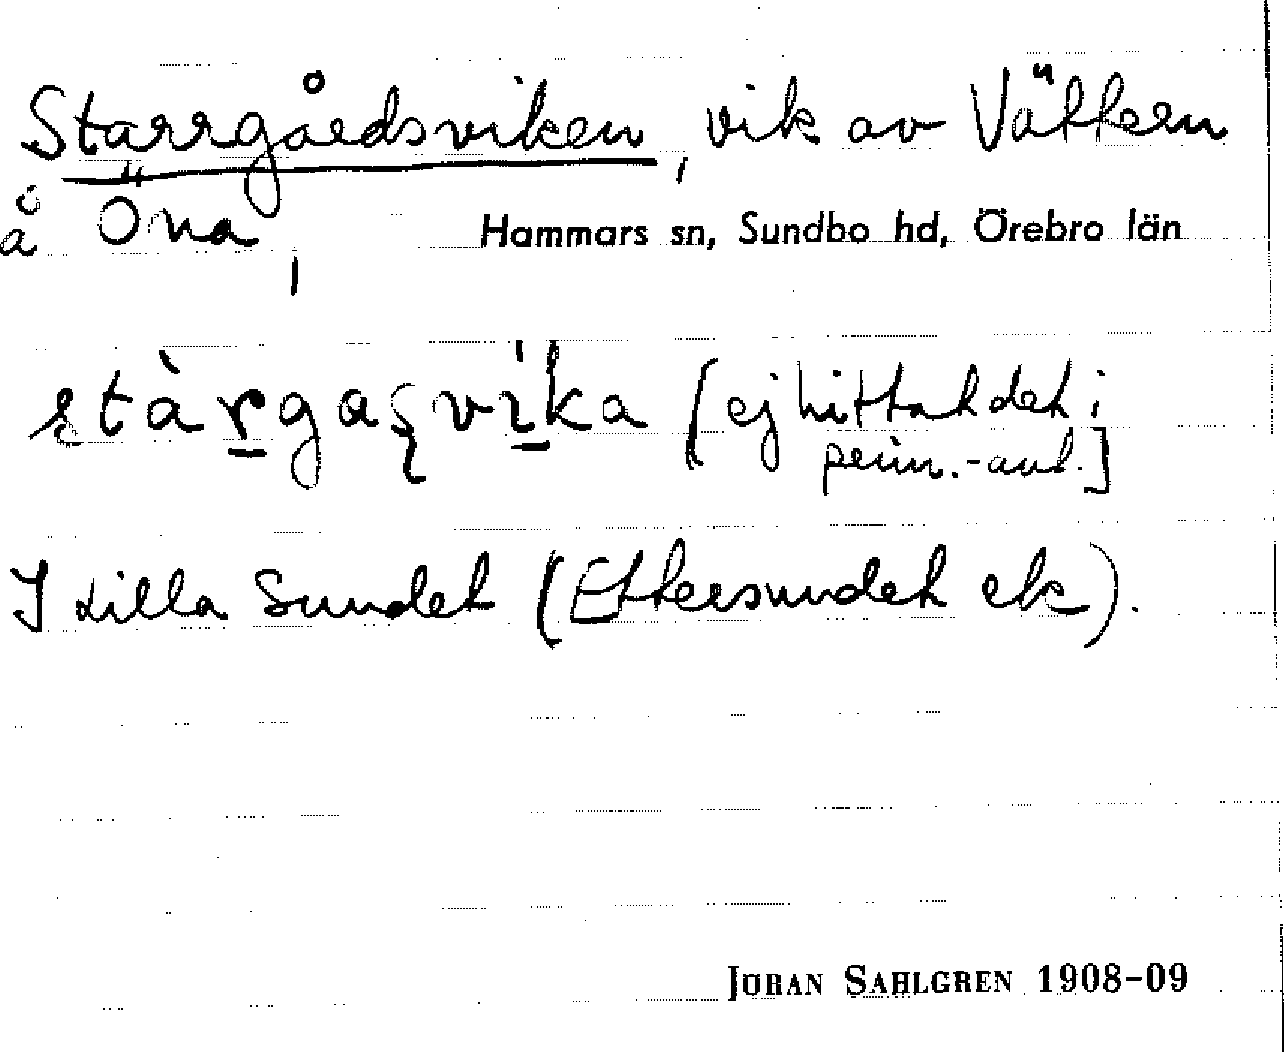 Starrgårdsviken, vik av Vättern
å Öna, Hammars sn, Sundbo hd, Örebro län
stàrgaşvi̇̀ka [ej hittat det i
perm.-aul.]
I Lilla Sundet (Ettersundet ek).
JÖRAN SAHLGREN 1908-09